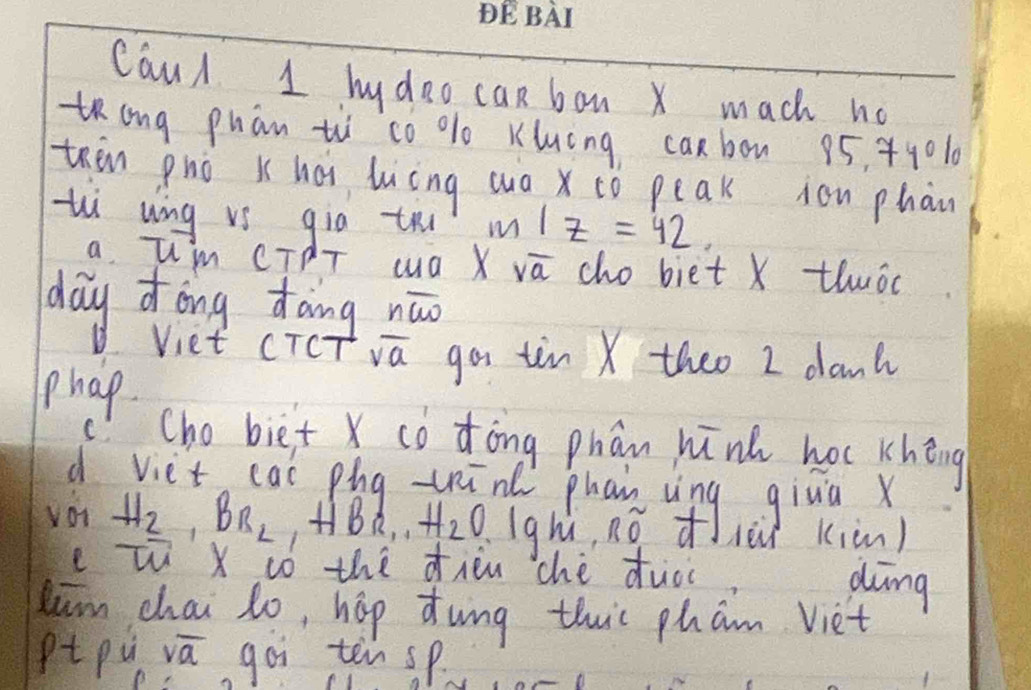 ĐỀ BÀI
Câu 1. 1 hydro carbon X mạch hở
trong phân tử có % Klượng carbon 85,74%
trên phổ khối lượng của X có peak ion phân
tử ứng vs giá trị m/z = 42.
a. Tìm CTPT của X và cho biết X thuộc
dãy đồng đẳng nào
b Viết CTCT và gọi tên X theo 2 danh
pháp.
c. Cho biết X có đồng phân hình học không
d Viết các phg trình phản ứng giữa X
với H2, BR2, HBR, H2O (ghi rõ điều kiện)
e Từ X có thể điều chế được, dùng
làm chai lo, hộp đựng thực phẩm Viết
ptpứ và gọi tên sp.